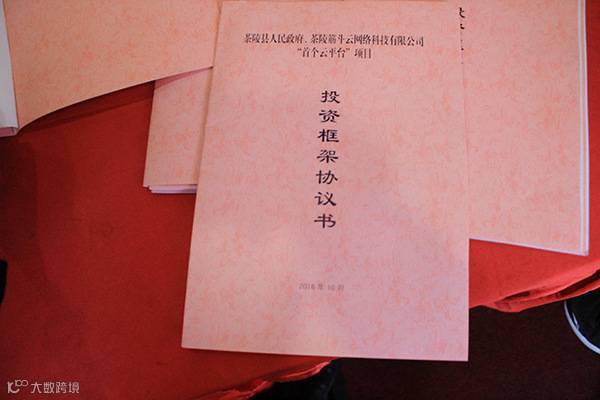 茶陵县人民政府、茶陵筋斗云网络科技有限公司
“首个云平台”项目
投资框架协议书
2016 年 10 月
大数跨境